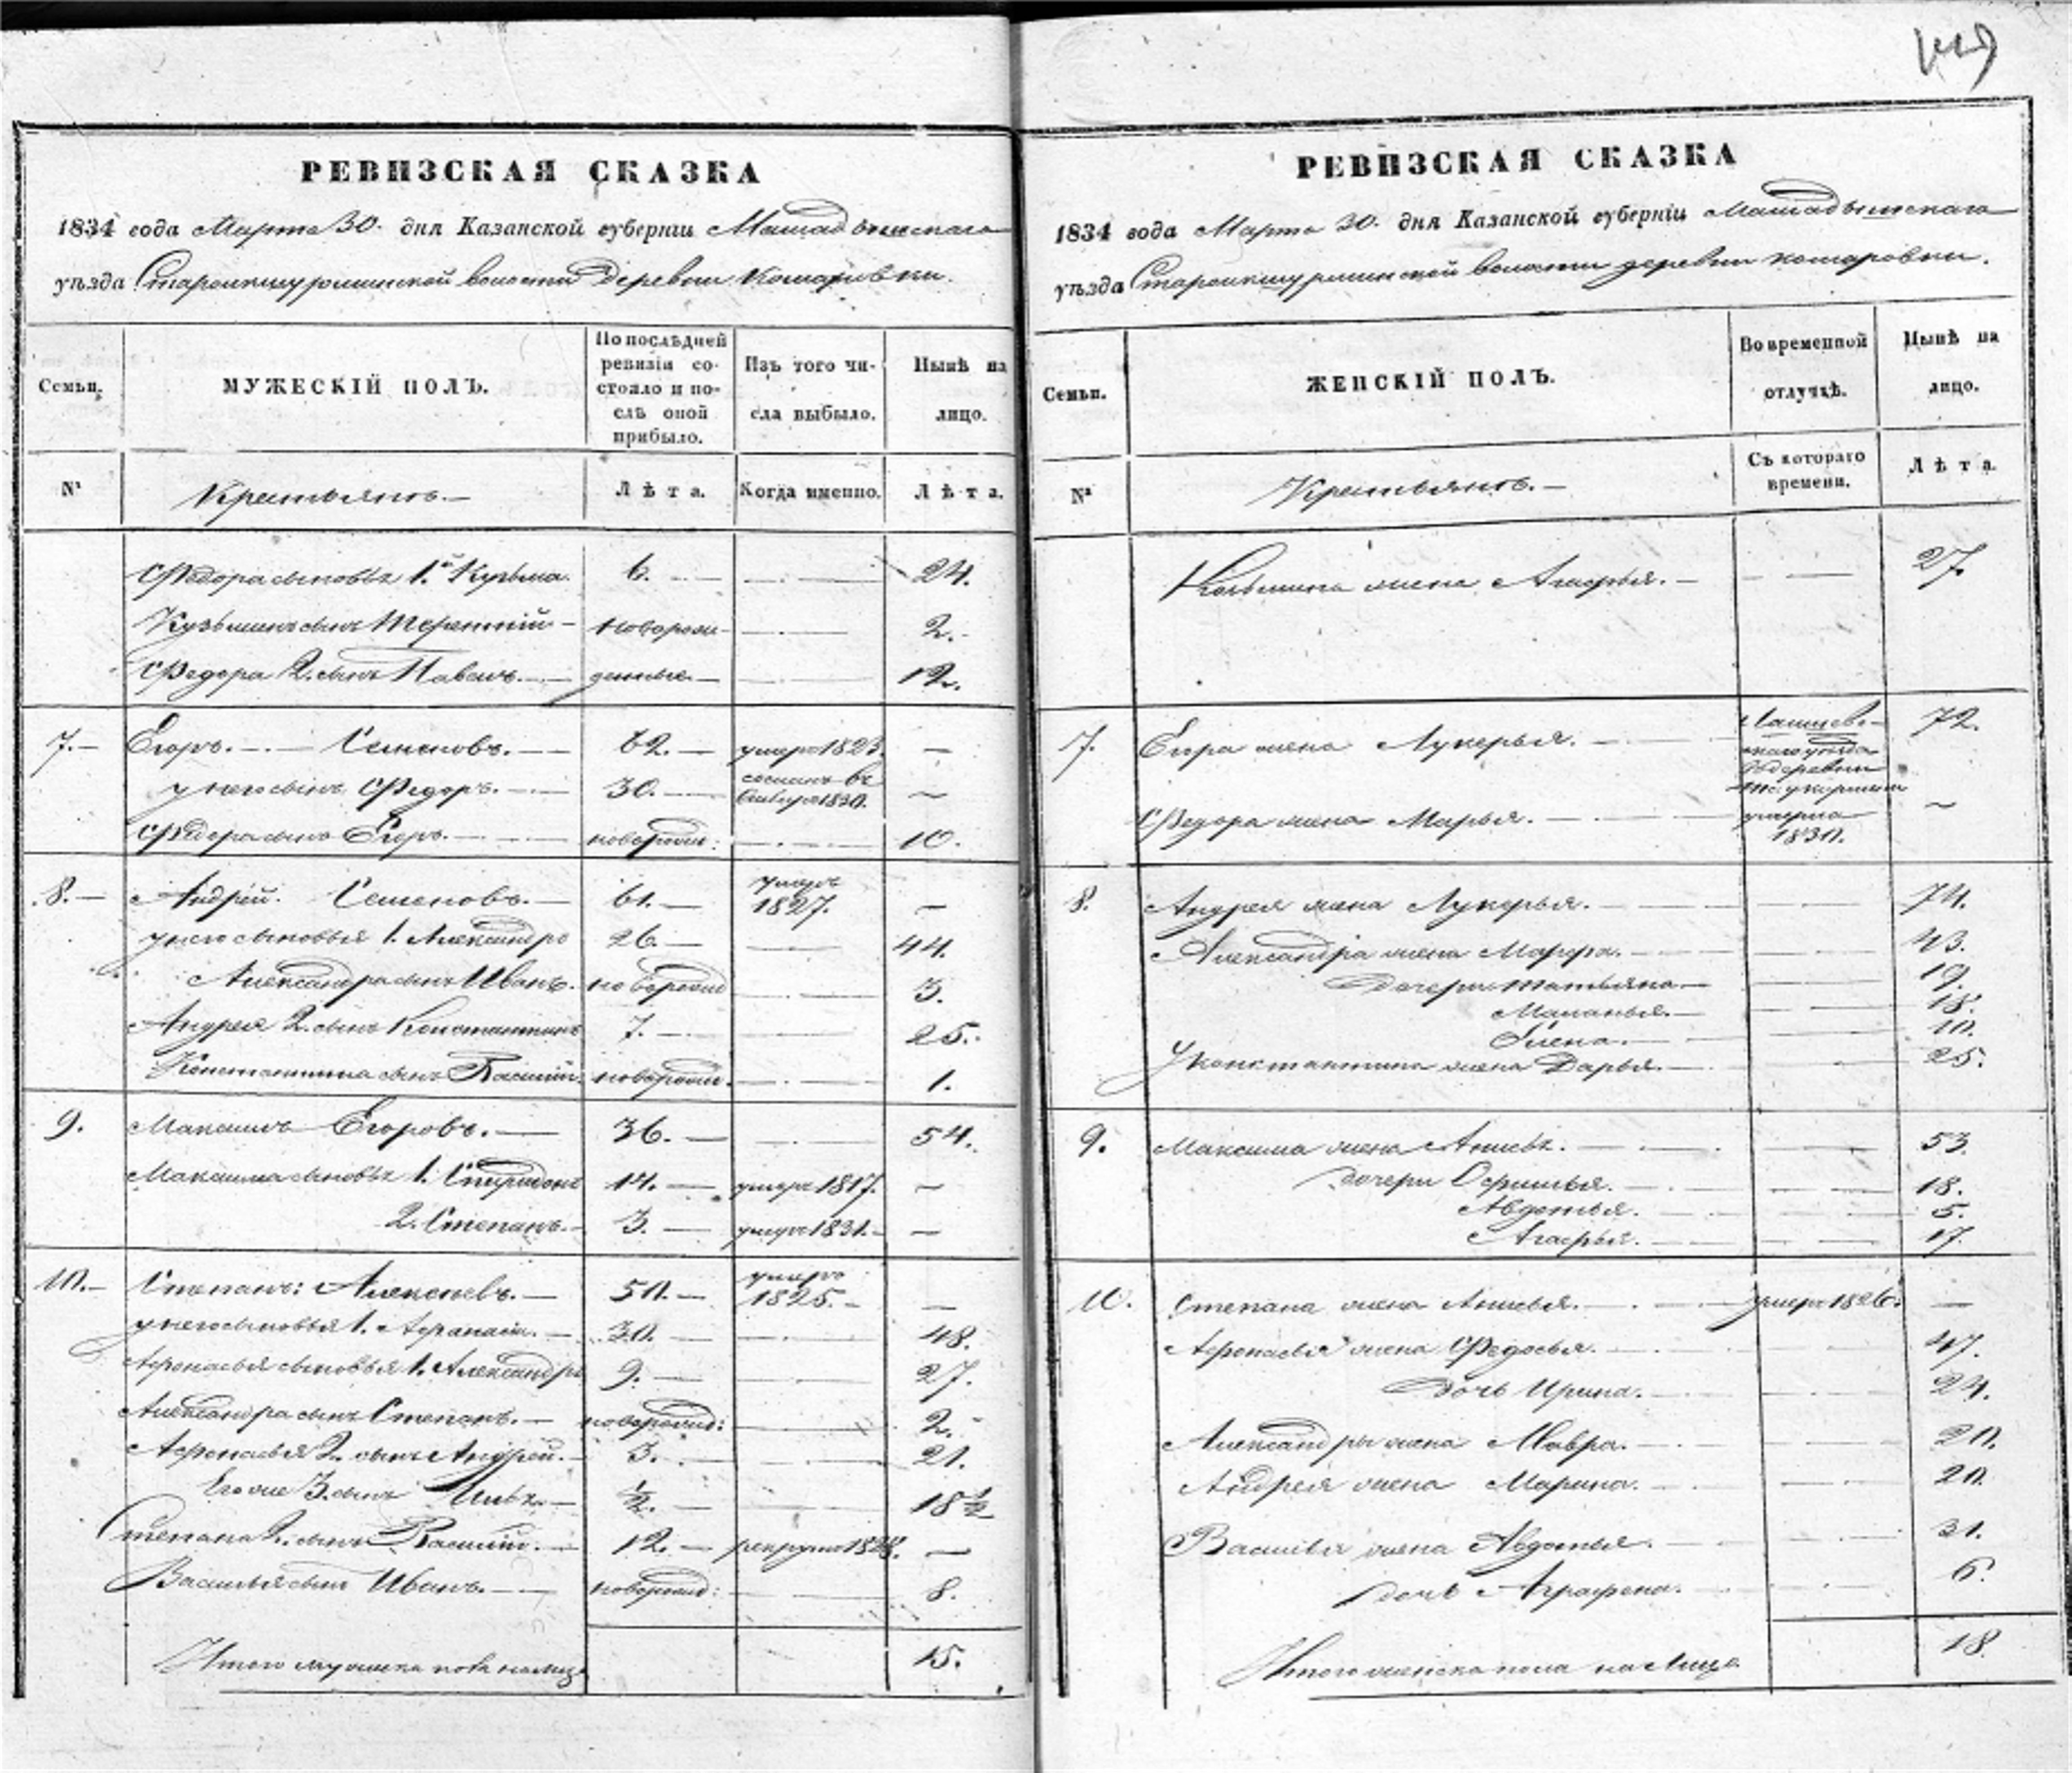 РЕВИЗСКАЯ СКАЗКА
1834 года Марта 30. дня Казанской губерніи Мамадышскаго
уѣзда Старошуршинской волости деревни Комаровки.
Семьи.
МУЖЕСКІЙ ПОЛЪ.
По послѣдней ревизіи состояло и послѣ оной прибыло.
Изъ того числа выбыло.
Нынѣ на лицо.
№
Крестьянъ.
Лѣта.
Когда именно.
Лѣта.
Федора сыновья 1.й Кузьма. 6. 24.
Кузьминъ сынъ Терентій новорож- 2.
Федора 2. сынъ Павелъ. денные 12.
7. Егоръ. Семеновъ. 62. умеръ 1823.
у него сынъ Федоръ. 30. сосланъ въ 1830.
Федора сынъ Егоръ. новорожд: 10.
8. Андрей. Семеновъ. 61. умеръ 1827.
у него сыновья 1. Александръ 26. 44.
Александра сынъ Иванъ. новорожд 3.
Андрея 2. сынъ Константинъ 7. 25.
Константина сынъ Василій. новорожд. 1.
9. Максимъ Егоровъ. 36. 54.
Максима сыновья 1. Спиридонъ 14. умеръ 1817.
2. Степанъ. 3. умеръ 1831.
10. Степанъ: Алексеевъ. 50. умеръ 1825.
у него сыновья 1. Афанасій. 30. 48.
Афонасья сыновья 1. Александръ 9. 27.
Александра сынъ Степанъ. новорожд: 2.
Афонасья 2. сынъ Андрей. 3. 21.
Его же 3. сынъ ½. 18½
Степана 2. сынъ Василій. 12. рекрутъ 1828.
Василья сынъ Иванъ. новорожд: 8.
Итого мужеска пола на лицо 15.
РЕВИЗСКАЯ СКАЗКА
1834 года Марта 30. дня Казанской губерніи Мамадышскаго
уѣзда Старошуршинской волости деревни комаровки.
Семьи.
ЖЕНСКІЙ ПОЛЪ.
Во временной отлучкѣ.
Нынѣ на лицо.
№
Крестьянъ.
Съ котораго времени.
Лѣта.
Козьмина жена Агафья. 27.
7. Егора жена Лукерья. 72.
Федора жена Марья. умерла 1830.
8. Андрея жена Лукерья. 74.
Александра жена Марфа. 43.
дочери Татьяна 19.
Маланья. 18.
Елена. 10.
У константина жена Дарья. 25.
9. Максима жена 53.
дочери Офимья. 18.
Авдотья. 5.
Агафья. 17.
10. Степана жена умерла 1826.
Афонасья жена Федосья. 47.
дочь Ирина. 24.
Александры жена Мавра. 20.
Андрея жена Марина. 20.
Василья жена Авдотья. 31.
дочь Аграфена. 6.
Итого женска пола на Лицо 18.